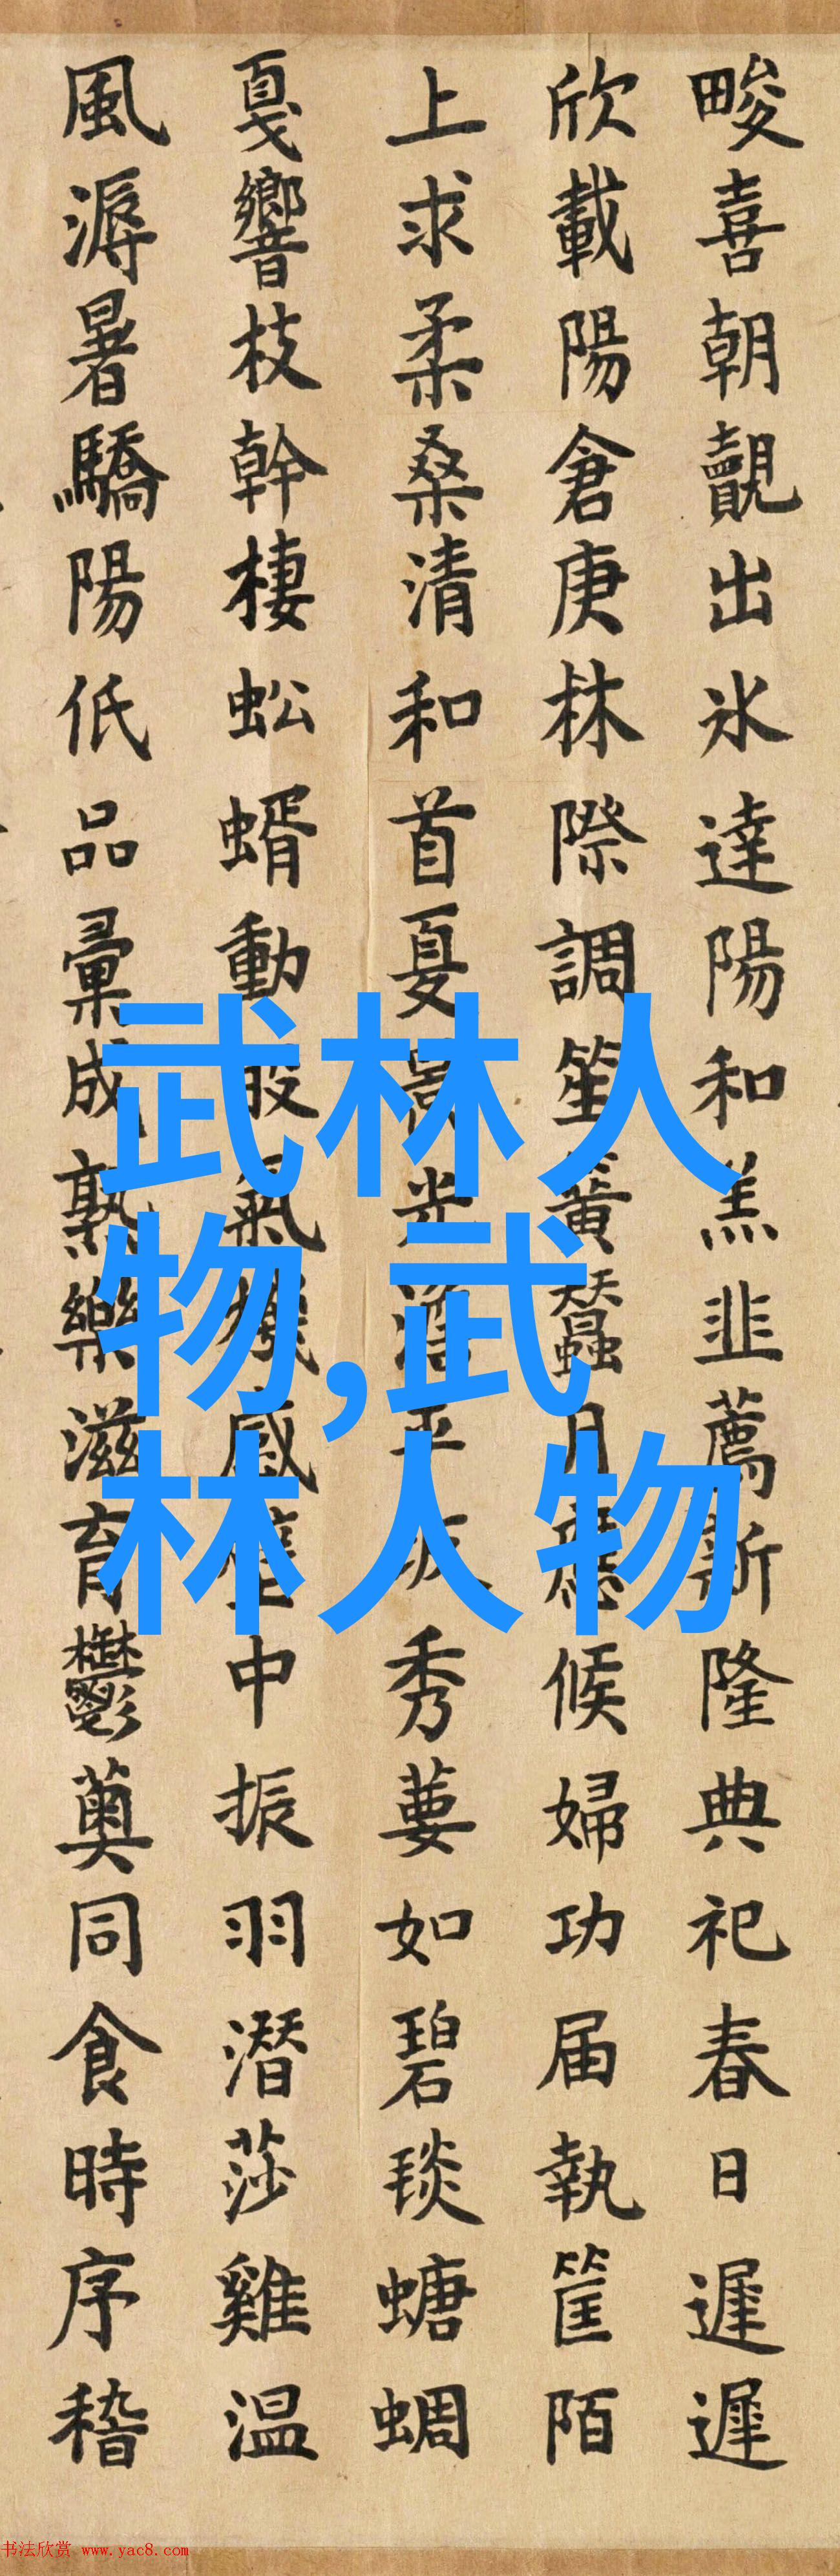 畯喜朝覿出氷達陽和羔韭薦新隆典祀春日遲遲
欣載陽倉庚林際調笙簧蠶月應候婦功届執筐陌
上求柔桑清和首夏秀葽如碧琰螗蜩
戛響枝幹棲蚣蝑動股氣機感中振羽潛莎雞温
風溽暑驕陽低品彙成熟樂滋育鬱薁同食時序稽
武林人
物,武
林人物
书法欣赏 www.yac8.com